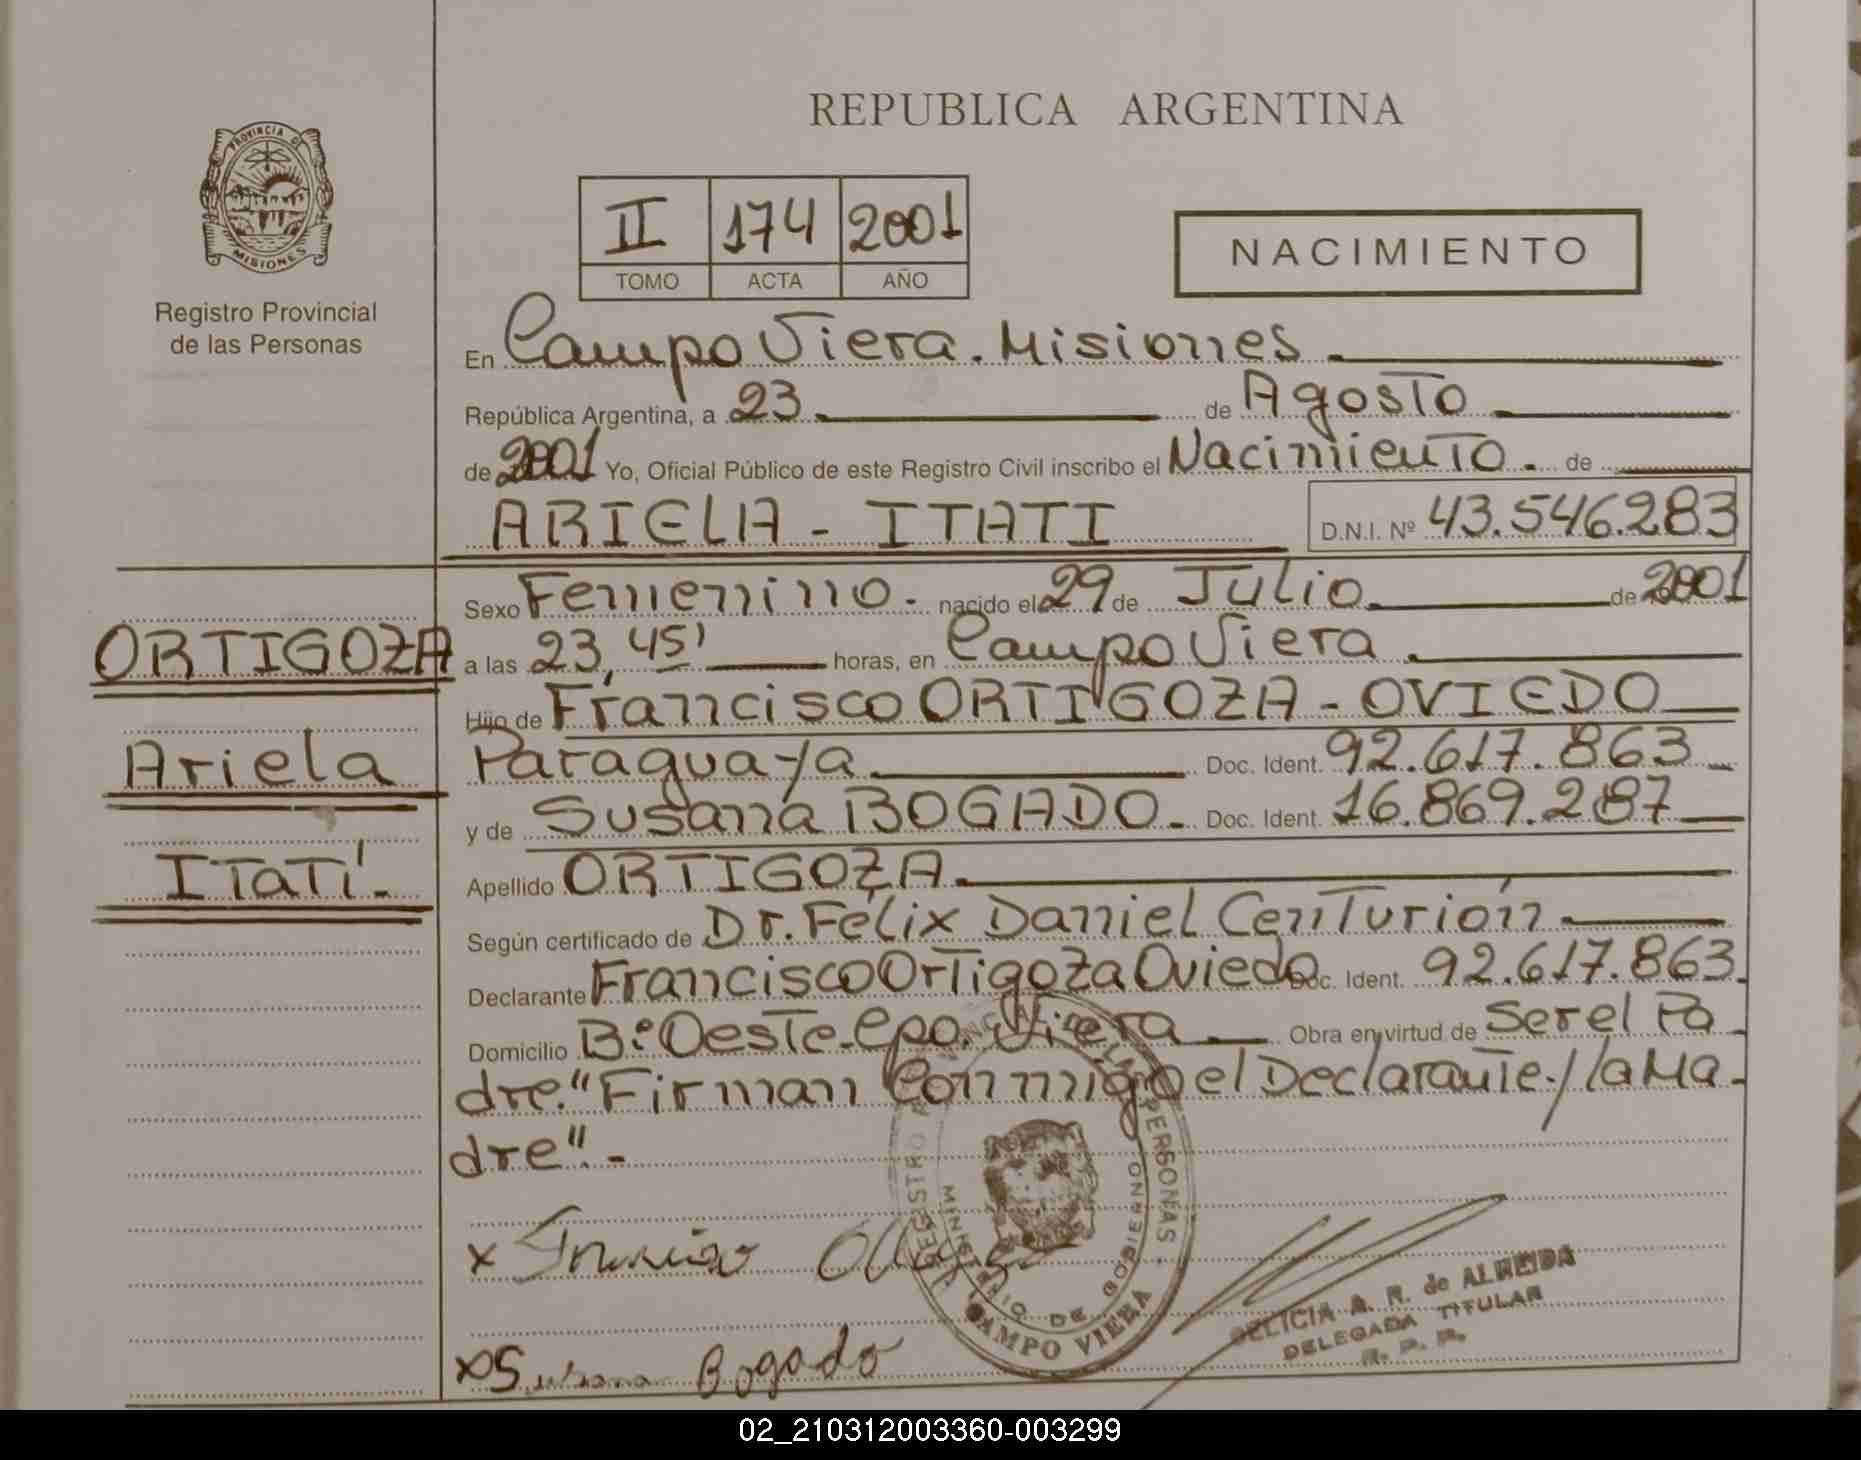 REPUBLICA ARGENTINA
PROVINCIA DE
MISIONES
Registro Provincial
de las Personas
II 174 2001
TOMO ACTA AÑO
NACIMIENTO
En Campo Viera. Misiones.
República Argentina, a 23 de Agosto
de 2001 Yo, Oficial Público de este Registro Civil inscribo el Nacimiento. de
ARIELA - ITATI D.N.I. Nº 43.546.283
Sexo Femenino. nacido el 29 de Julio de 2001
ORTIGOZA
a las 23,45' horas, en Campo Viera.
Hijo de Francisco ORTIGOZA - OVIEDO
Ariela
Paraguaya Doc. Ident. 92.617.863
y de Susana BOGADO. Doc. Ident. 16.869.287
Itatí.
Apellido ORTIGOZA.
Según certificado de Dr. Félix Daniel Centurión
Declarante Francisco Ortigoza Oviedo Doc. Ident. 92.617.863.
Domicilio Bº Oeste. Cpo. Viera Obra en virtud de Ser el Pa
dre." Firman Conmigo el Declarante / la Ma-
dre".-
REGISTRO PROVINCIAL DE LAS PERSONAS
MINISTERIO DE GOBIERNO
CAMPO VIERA
x
x Susana Bogado
DELICIA A. R. de ALMEIDA
DELEGADA TITULAR
R. P. P.
02_210312003360-003299